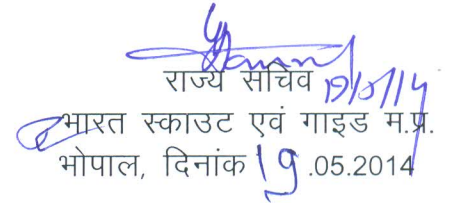 राज्य सचिव 19/5/14
भारत स्काउट एवं गाइड म.प्र.
भोपाल, दिनांक 19.05.2014